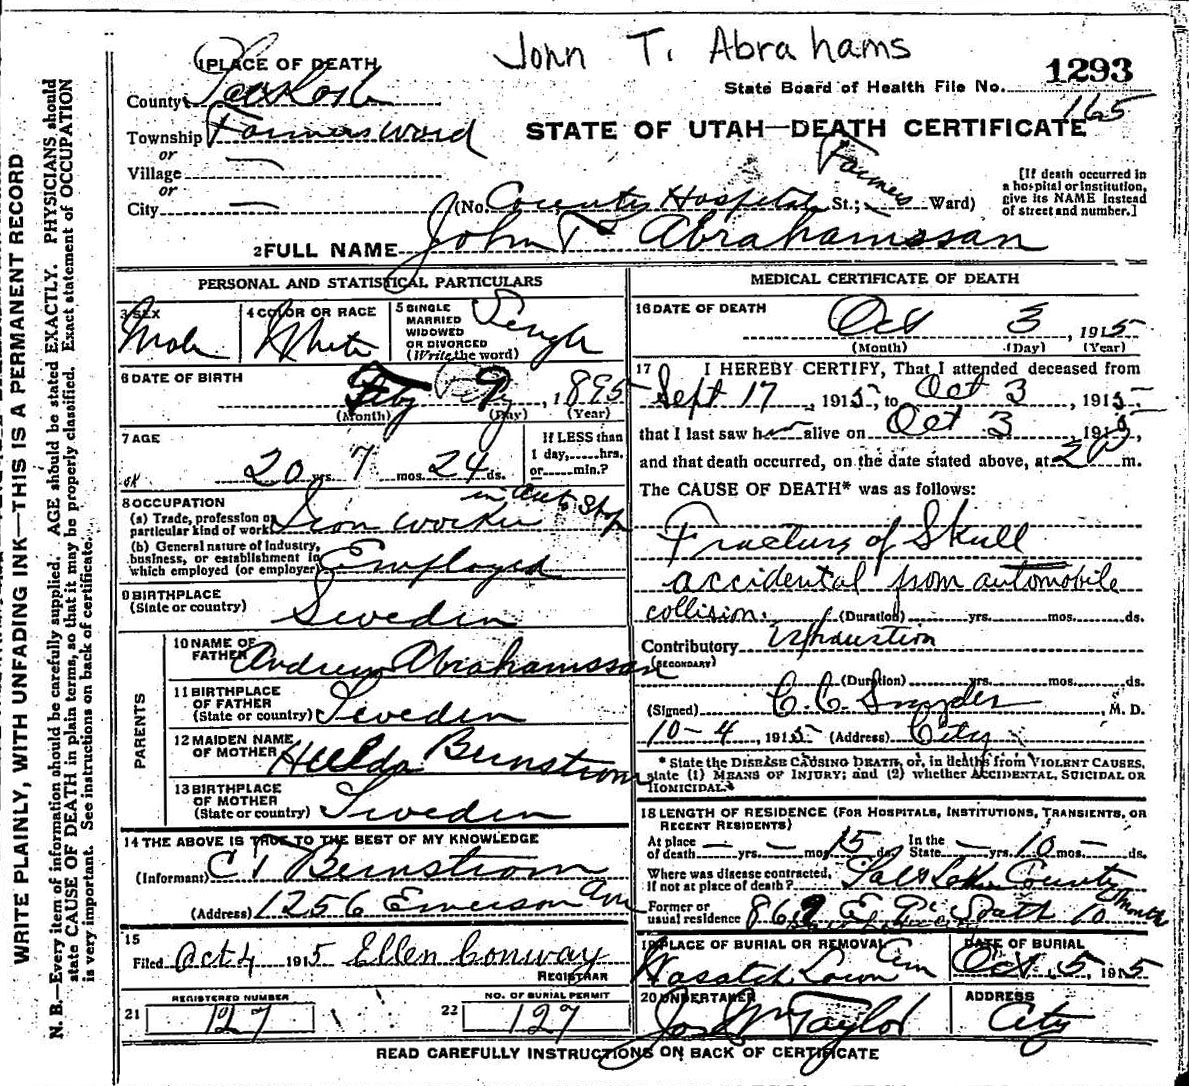 John T. Abrahams
1293
1 PLACE OF DEATH
State Board of Health File No. 165
County Salt Lake
Township Farmers Ward
STATE OF UTAH—DEATH CERTIFICATE
or
Village —
or
City —
(No. County Hospital St.; Farmers Ward)
[If death occurred in
a hospital or institution,
give its NAME instead
of street and number.]
2 FULL NAME John T. Abrahamssan
PERSONAL AND STATISTICAL PARTICULARS
3 SEX
Male
4 COLOR OR RACE
White
5 SINGLE
MARRIED
WIDOWED
OR DIVORCED
(Write the word)
Single
6 DATE OF BIRTH
Feby 9, 1895
(Month) (Day) (Year)
7 AGE
20 yrs. 7 mos. 24 ds.
If LESS than
1 day,.....hrs.
or.....min.?
8 OCCUPATION
(a) Trade, profession or
particular kind of work Iron worker in Shop
(b) General nature of industry,
business, or establishment in
which employed (or employer) Employed
9 BIRTHPLACE
(State or country) Sweden
PARENTS
10 NAME OF
FATHER Andrew Abrahamssan
11 BIRTHPLACE
OF FATHER
(State or country) Sweden
12 MAIDEN NAME
OF MOTHER Hulda Bernstrom
13 BIRTHPLACE
OF MOTHER
(State or country) Sweden
14 THE ABOVE IS TRUE TO THE BEST OF MY KNOWLEDGE
(Informant) C T Bernstrom
(Address) 1256 Emerson Ave
15
Filed Oct 4 1915 Ellen Conway
REGISTRAR
REGISTERED NUMBER
21 127
NO. OF BURIAL PERMIT
22 127
MEDICAL CERTIFICATE OF DEATH
16 DATE OF DEATH
Oct 3, 1915
(Month) (Day) (Year)
17 I HEREBY CERTIFY, That I attended deceased from
Sept 17, 1915, to Oct 3, 1915,
that I last saw him alive on Oct 3, 1915,
and that death occurred, on the date stated above, at 2 P m.
The CAUSE OF DEATH* was as follows:
Fracture of Skull
accidental from automobile
collision. (Duration) yrs. mos. ds.
Contributory Exhaustion
(SECONDARY)
(Duration) yrs. mos. ds.
(Signed) C. C. Snyder, M. D.
10-4, 1915 (Address) City
* State the DISEASE CAUSING DEATH, or, in deaths from VIOLENT CAUSES,
state (1) MEANS OF INJURY; and (2) whether ACCIDENTAL, SUICIDAL OR
HOMICIDAL.
18 LENGTH OF RESIDENCE (FOR HOSPITALS, INSTITUTIONS, TRANSIENTS, OR
RECENT RESIDENTS)
At place
of death — yrs. — mos. 15 ds. In the
State — yrs. 10 mos. — ds.
Where was disease contracted,
if not at place of death? Salt Lake County
Former or
usual residence South 10 months
19 PLACE OF BURIAL OR REMOVAL
Wasatch Lawn Cem
DATE OF BURIAL
Oct. 5, 1915
20 UNDERTAKER
Jos Wm Taylor
ADDRESS
City
READ CAREFULLY INSTRUCTIONS ON BACK OF CERTIFICATE
WRITE PLAINLY, WITH UNFADING INK—THIS IS A PERMANENT RECORD
N. B.—Every item of information should be carefully supplied. AGE should be stated EXACTLY. PHYSICIANS should
state CAUSE OF DEATH in plain terms, so that it may be properly classified. Exact statement of OCCUPATION
is very important. See instructions on back of certificate.